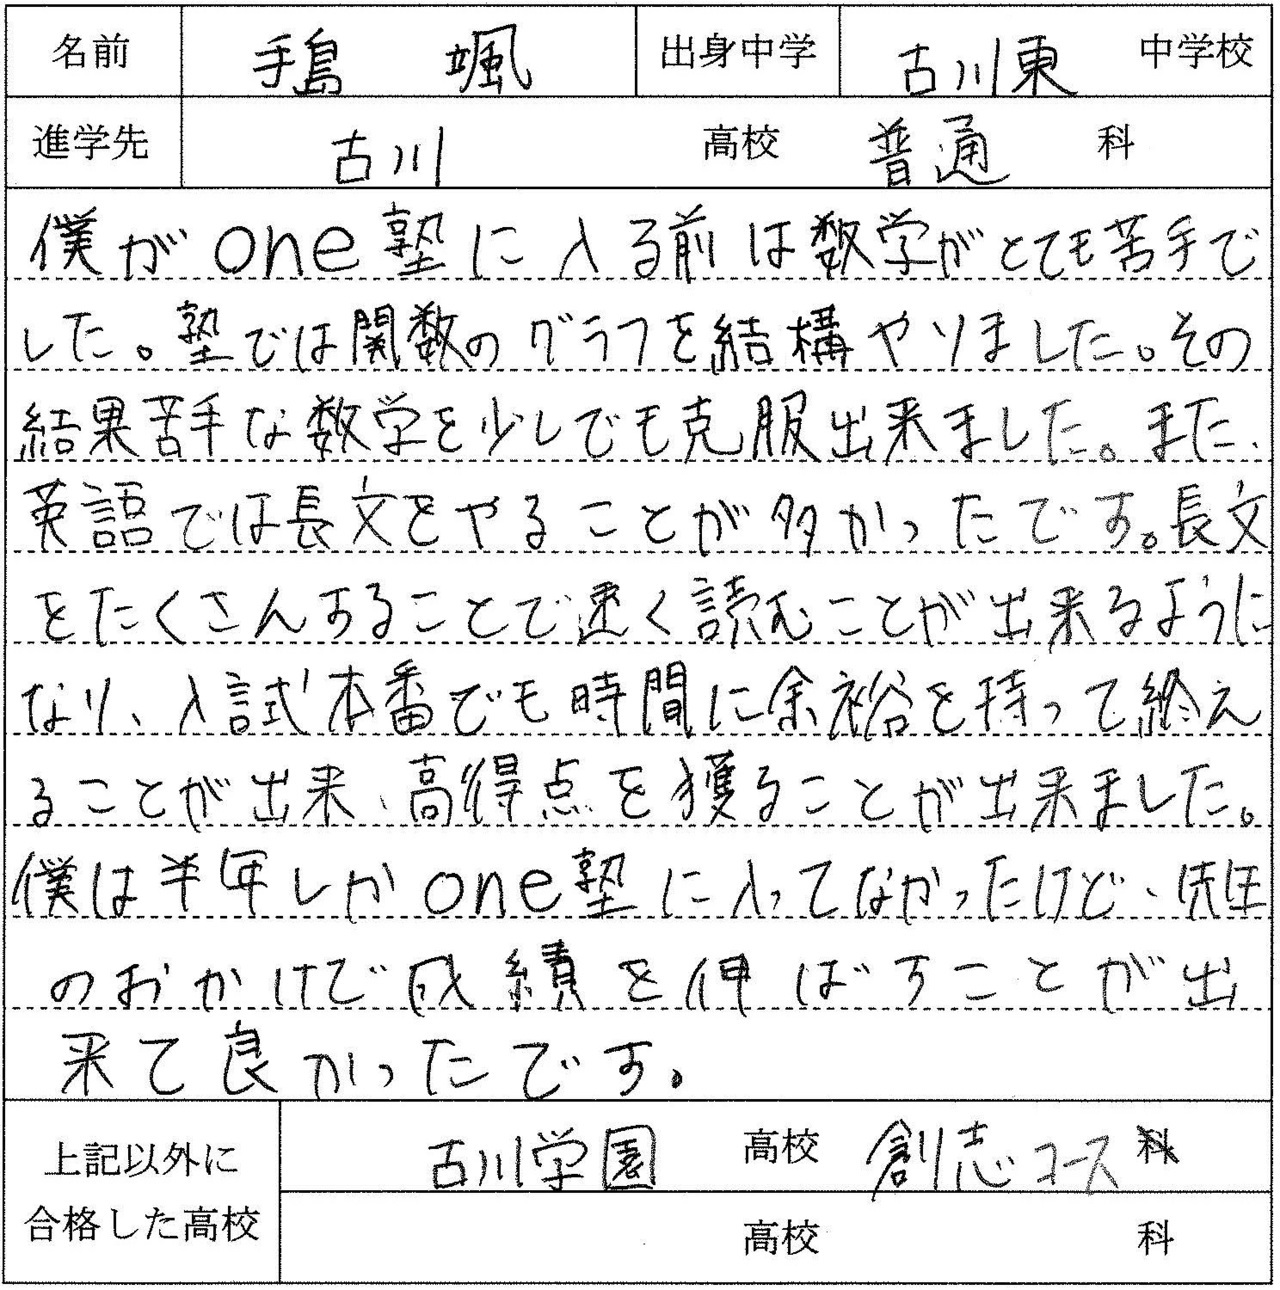 名前 手島 颯 出身中学 古川東 中学校
進学先 古川 高校 普通 科
僕がone塾に入る前は数学がとても苦手で
した。塾では関数のグラフを結構やりました。その
結果苦手な数学を少しでも克服出来ました。また、
英語では長文をやることが多かったです。長文
をたくさんすることで速く読むことが出来るように
なり、入試本番でも時間に余裕を持って終え
ることが出来、高得点を獲ることが出来ました。
僕は半年しかone塾に入ってなかったけど、先生
のおかげで成績を伸ばすことが出
来て良かったです。
上記以外に
合格した高校
古川学園 高校 創志コース 科
高校 科